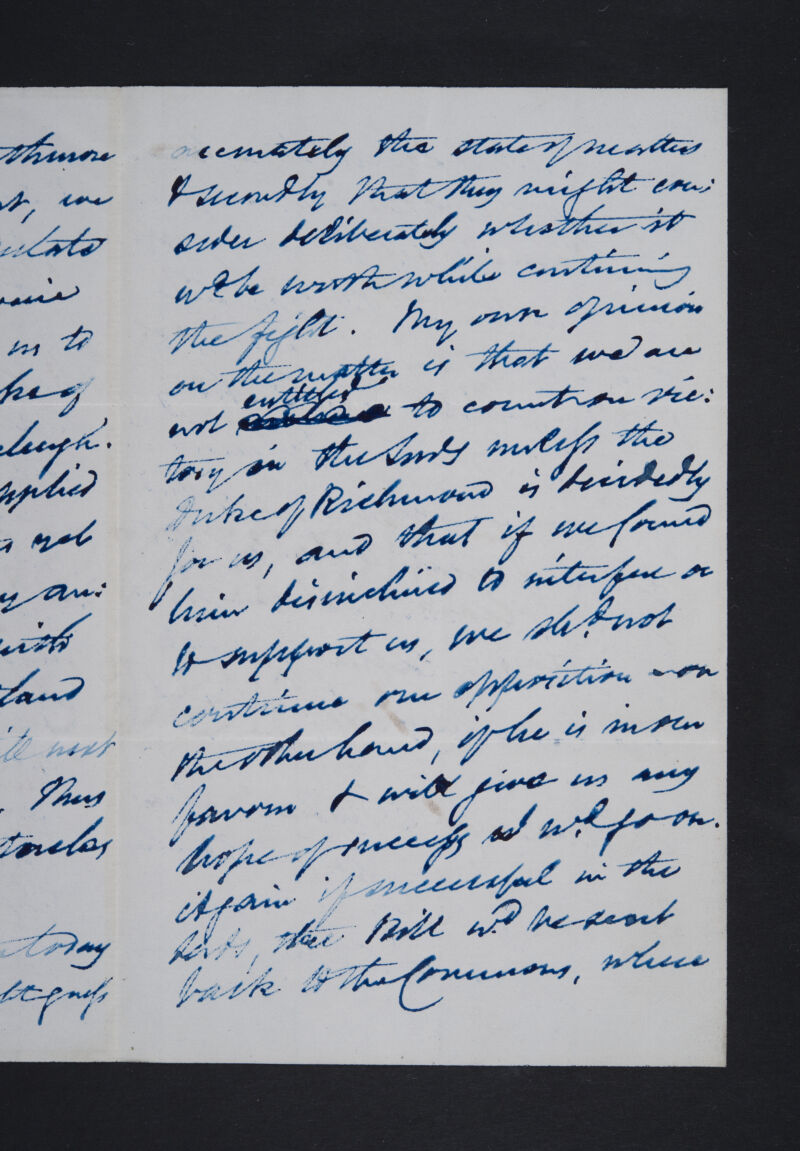 thmore
we
to
of
cleugh.
applied
yet
an:
with
land
next
Thus
today
guess
accurately the state of matters
& secondly that they might con:
sider deliberately whether it
wd be worth while continuing
the fight. My own opinion
on the matter is that we are
entitled
not to count on vic:
tory in the Lords unless the
Duke of Richmond is decidedly
for us, and that if we found
him disinclined to interfere or
to support us, we shd. not
continue our opposition - on
the other hand, if he is in our
favour & will give us any
hope of success we wd. go on.
Again if successful in the
Lords, the Bill wd be sent
back to the Commons, where